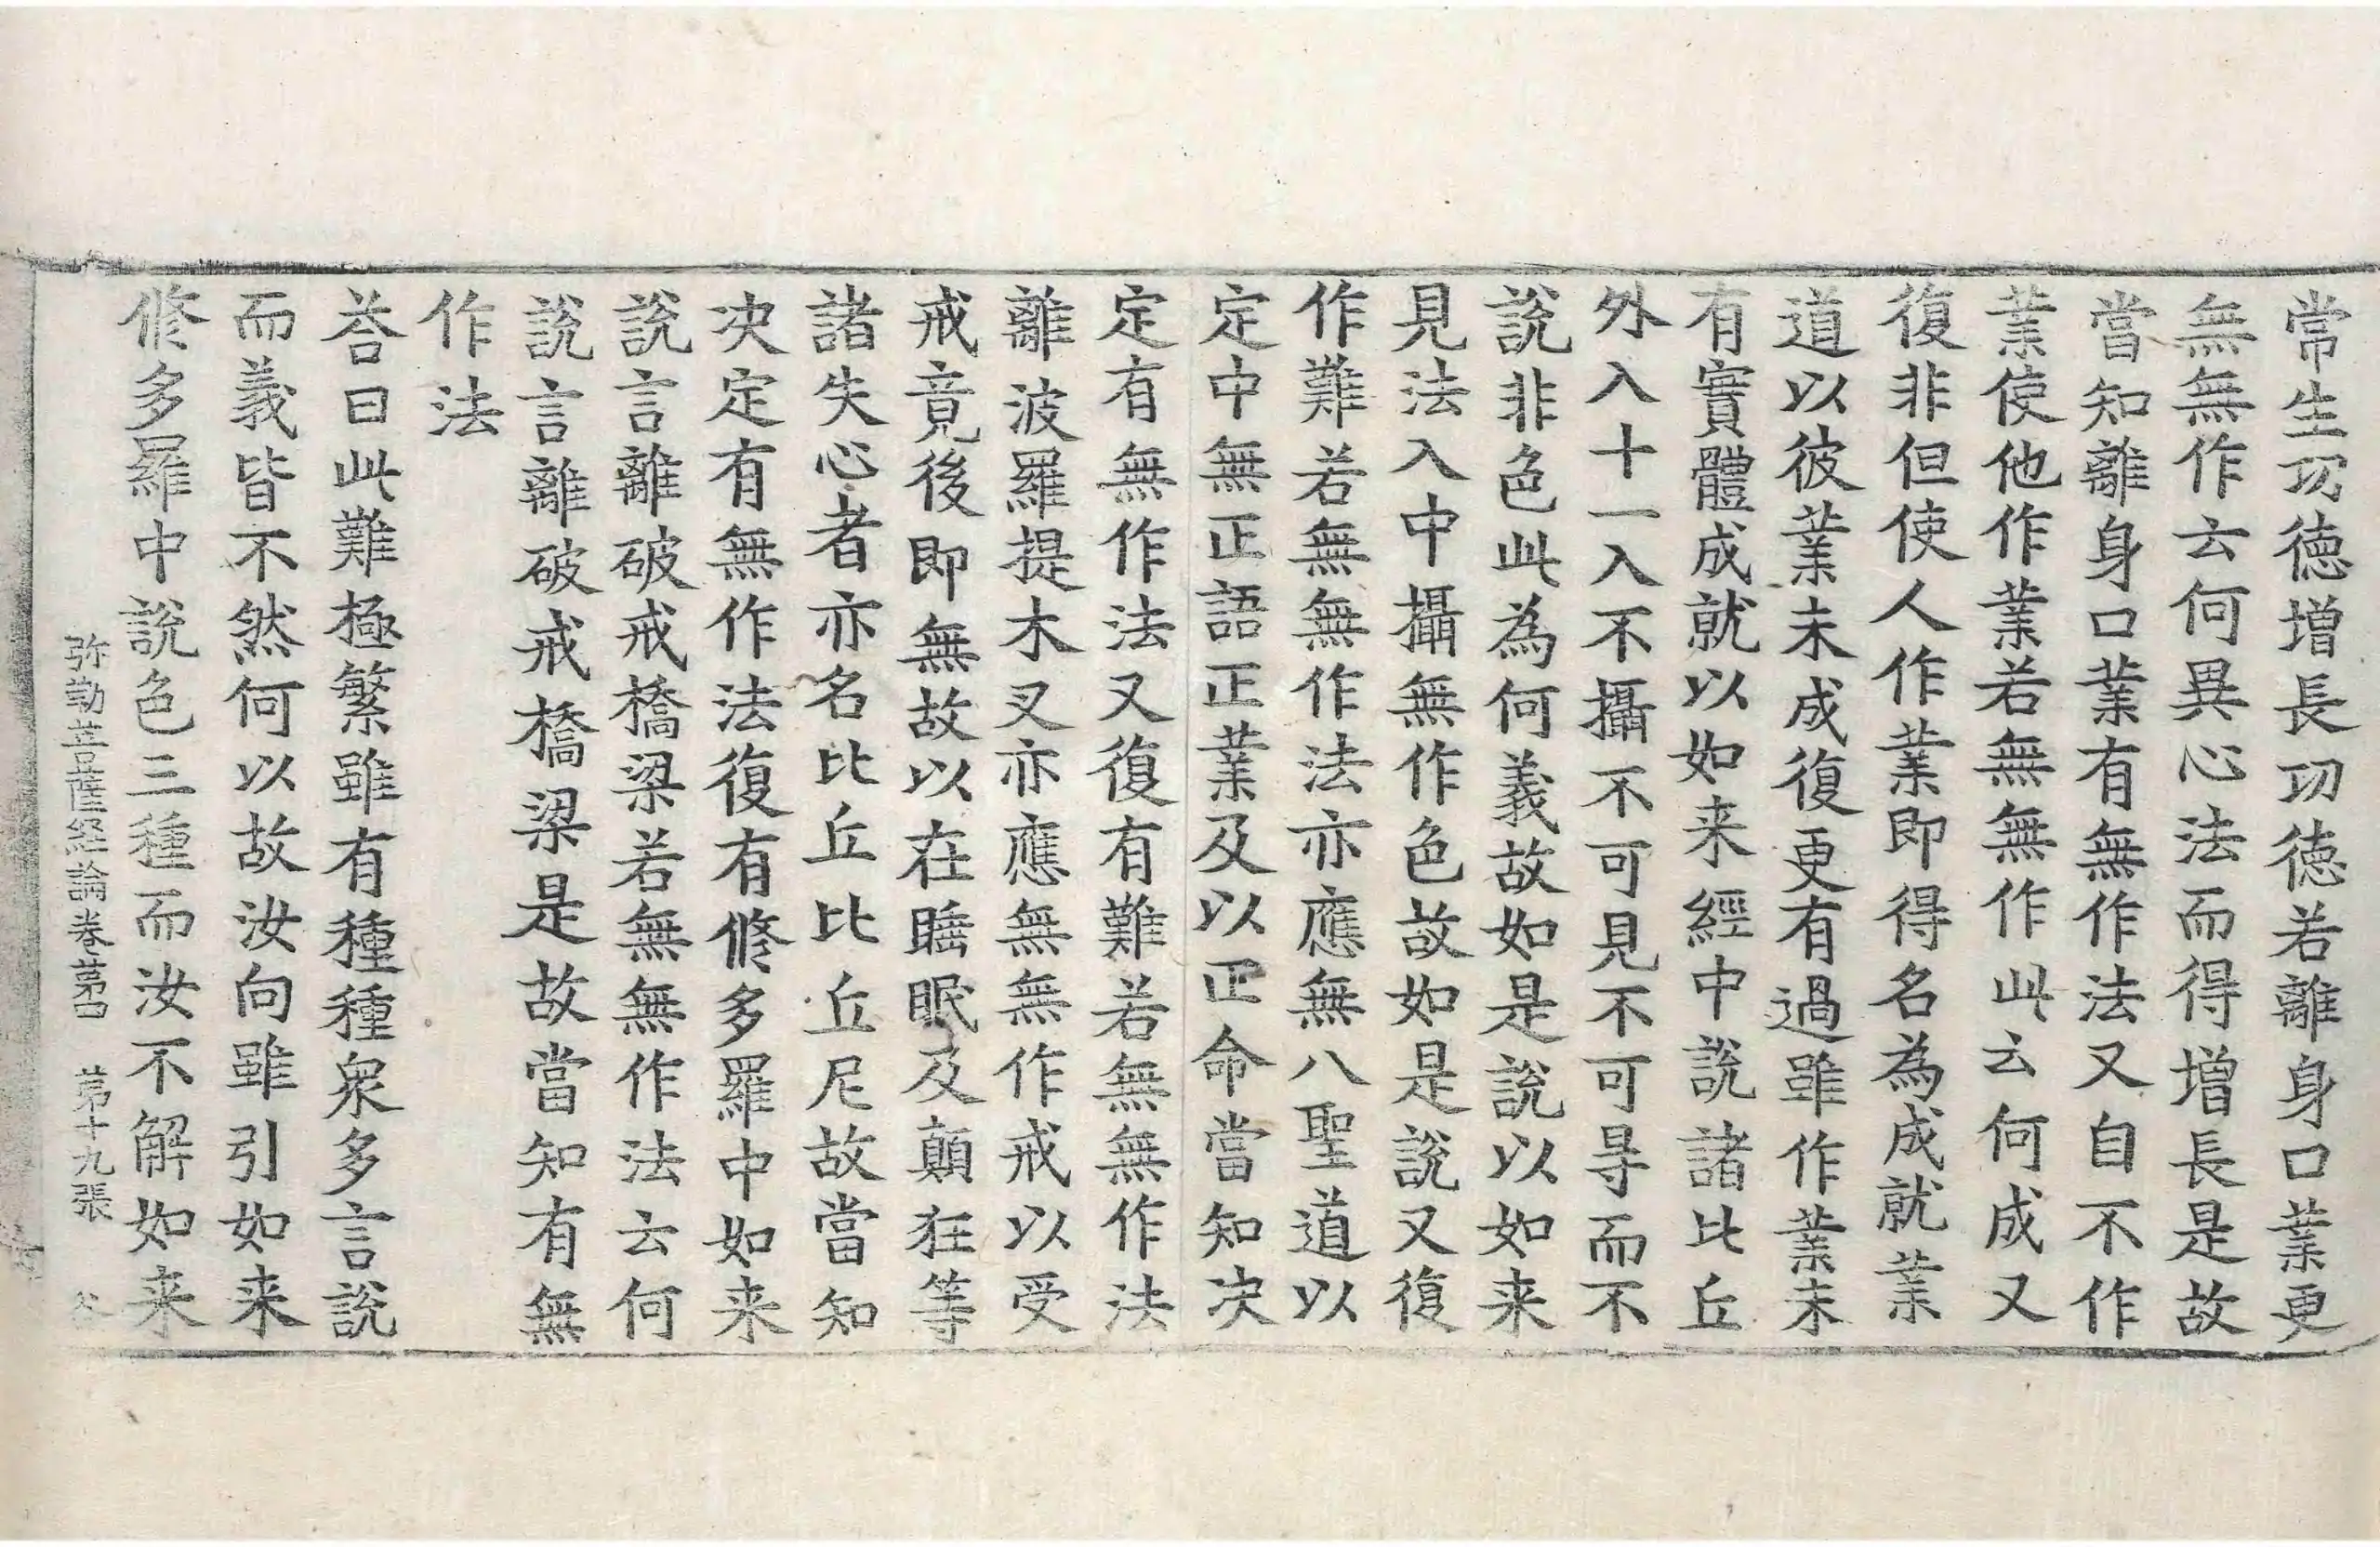 常生功德增長功德若離身口業更
無無作云何異心法而得增長是故
當知離身口業有無作法又自不作
業使他作業若無無作此云何成又
復非但使人作業即得名為成就業
道以彼業未成復更有過雖作業未
有實體成就以如来經中說諸比丘
外入十一入不攝不可見不可㝵而不
說非色此為何義故如是說以如来
見法入中攝無作色故如是說又復
作難若無無作法亦應無八聖道以
定中無正語正業及以正命當知决
定有無作法又復有難若無無作法
離波羅提木叉亦應無無作戒以受
戒竟後即無故以在睡眠及顛狂等
諸失心者亦名比丘比丘尼故當知
决定有無作法復有修多羅中如来
說言離破戒橋梁若無無作法云何
說言離破戒橋梁是故當知有無
作法
荅曰此難極繁雖有種種衆多言說
而義皆不然何以故汝向雖引如来
修多羅中說色三種而汝不解如来
弥勒菩薩経論卷第四 第十九張